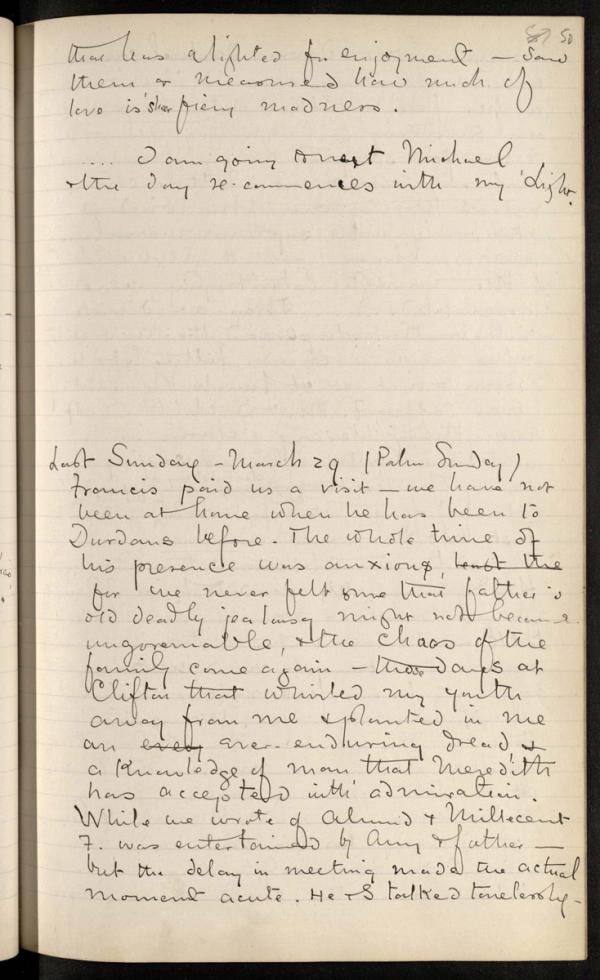 50
that has alighted for enjoyment – saw
them & measured how much of
love is sheer fiery madness.
.... I am going to meet Michael
& the day re-commences with my 'Light.
Last Sunday – March 29 (Palm Sunday)
Francis paid us a visit – we have not
been at home when he has been to
Durdans before. The whole time of
his presence was anxious, least the
for we never felt sure that father's
old deadly jealousy might not become
ungovernable, & the chaos of the
family come again – those days at
Clifton that whirled my youth
away from me & planted in me
an every ever-enduring dread, &
a knowledge of man that Meredith
has accepted with admiration.
While we wrote of Almund & Millecent
F. was entertained by Amy & father –
but the delay in meeting made the actual
moment acute. He & I talked tonelessly –